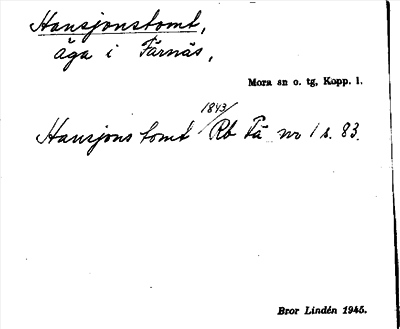 Hansjonstomt,
äga i Färnäs,
Mora sn o. tg, Kopp. l.
1843/
Hansjons tomt Rb Fä nr 1 s. 83.
Bror Lindén 1945.